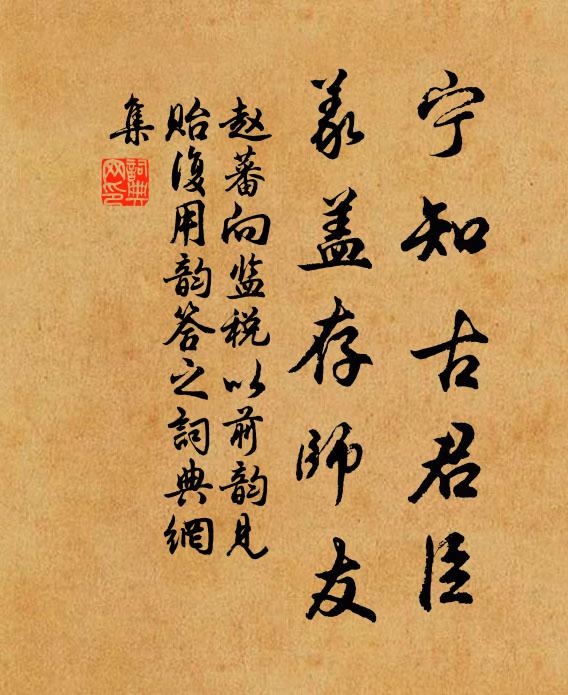 宁知古君臣
义盖存师友
赵蕃向监税以前韵见
贻复用韵答之词典网
集